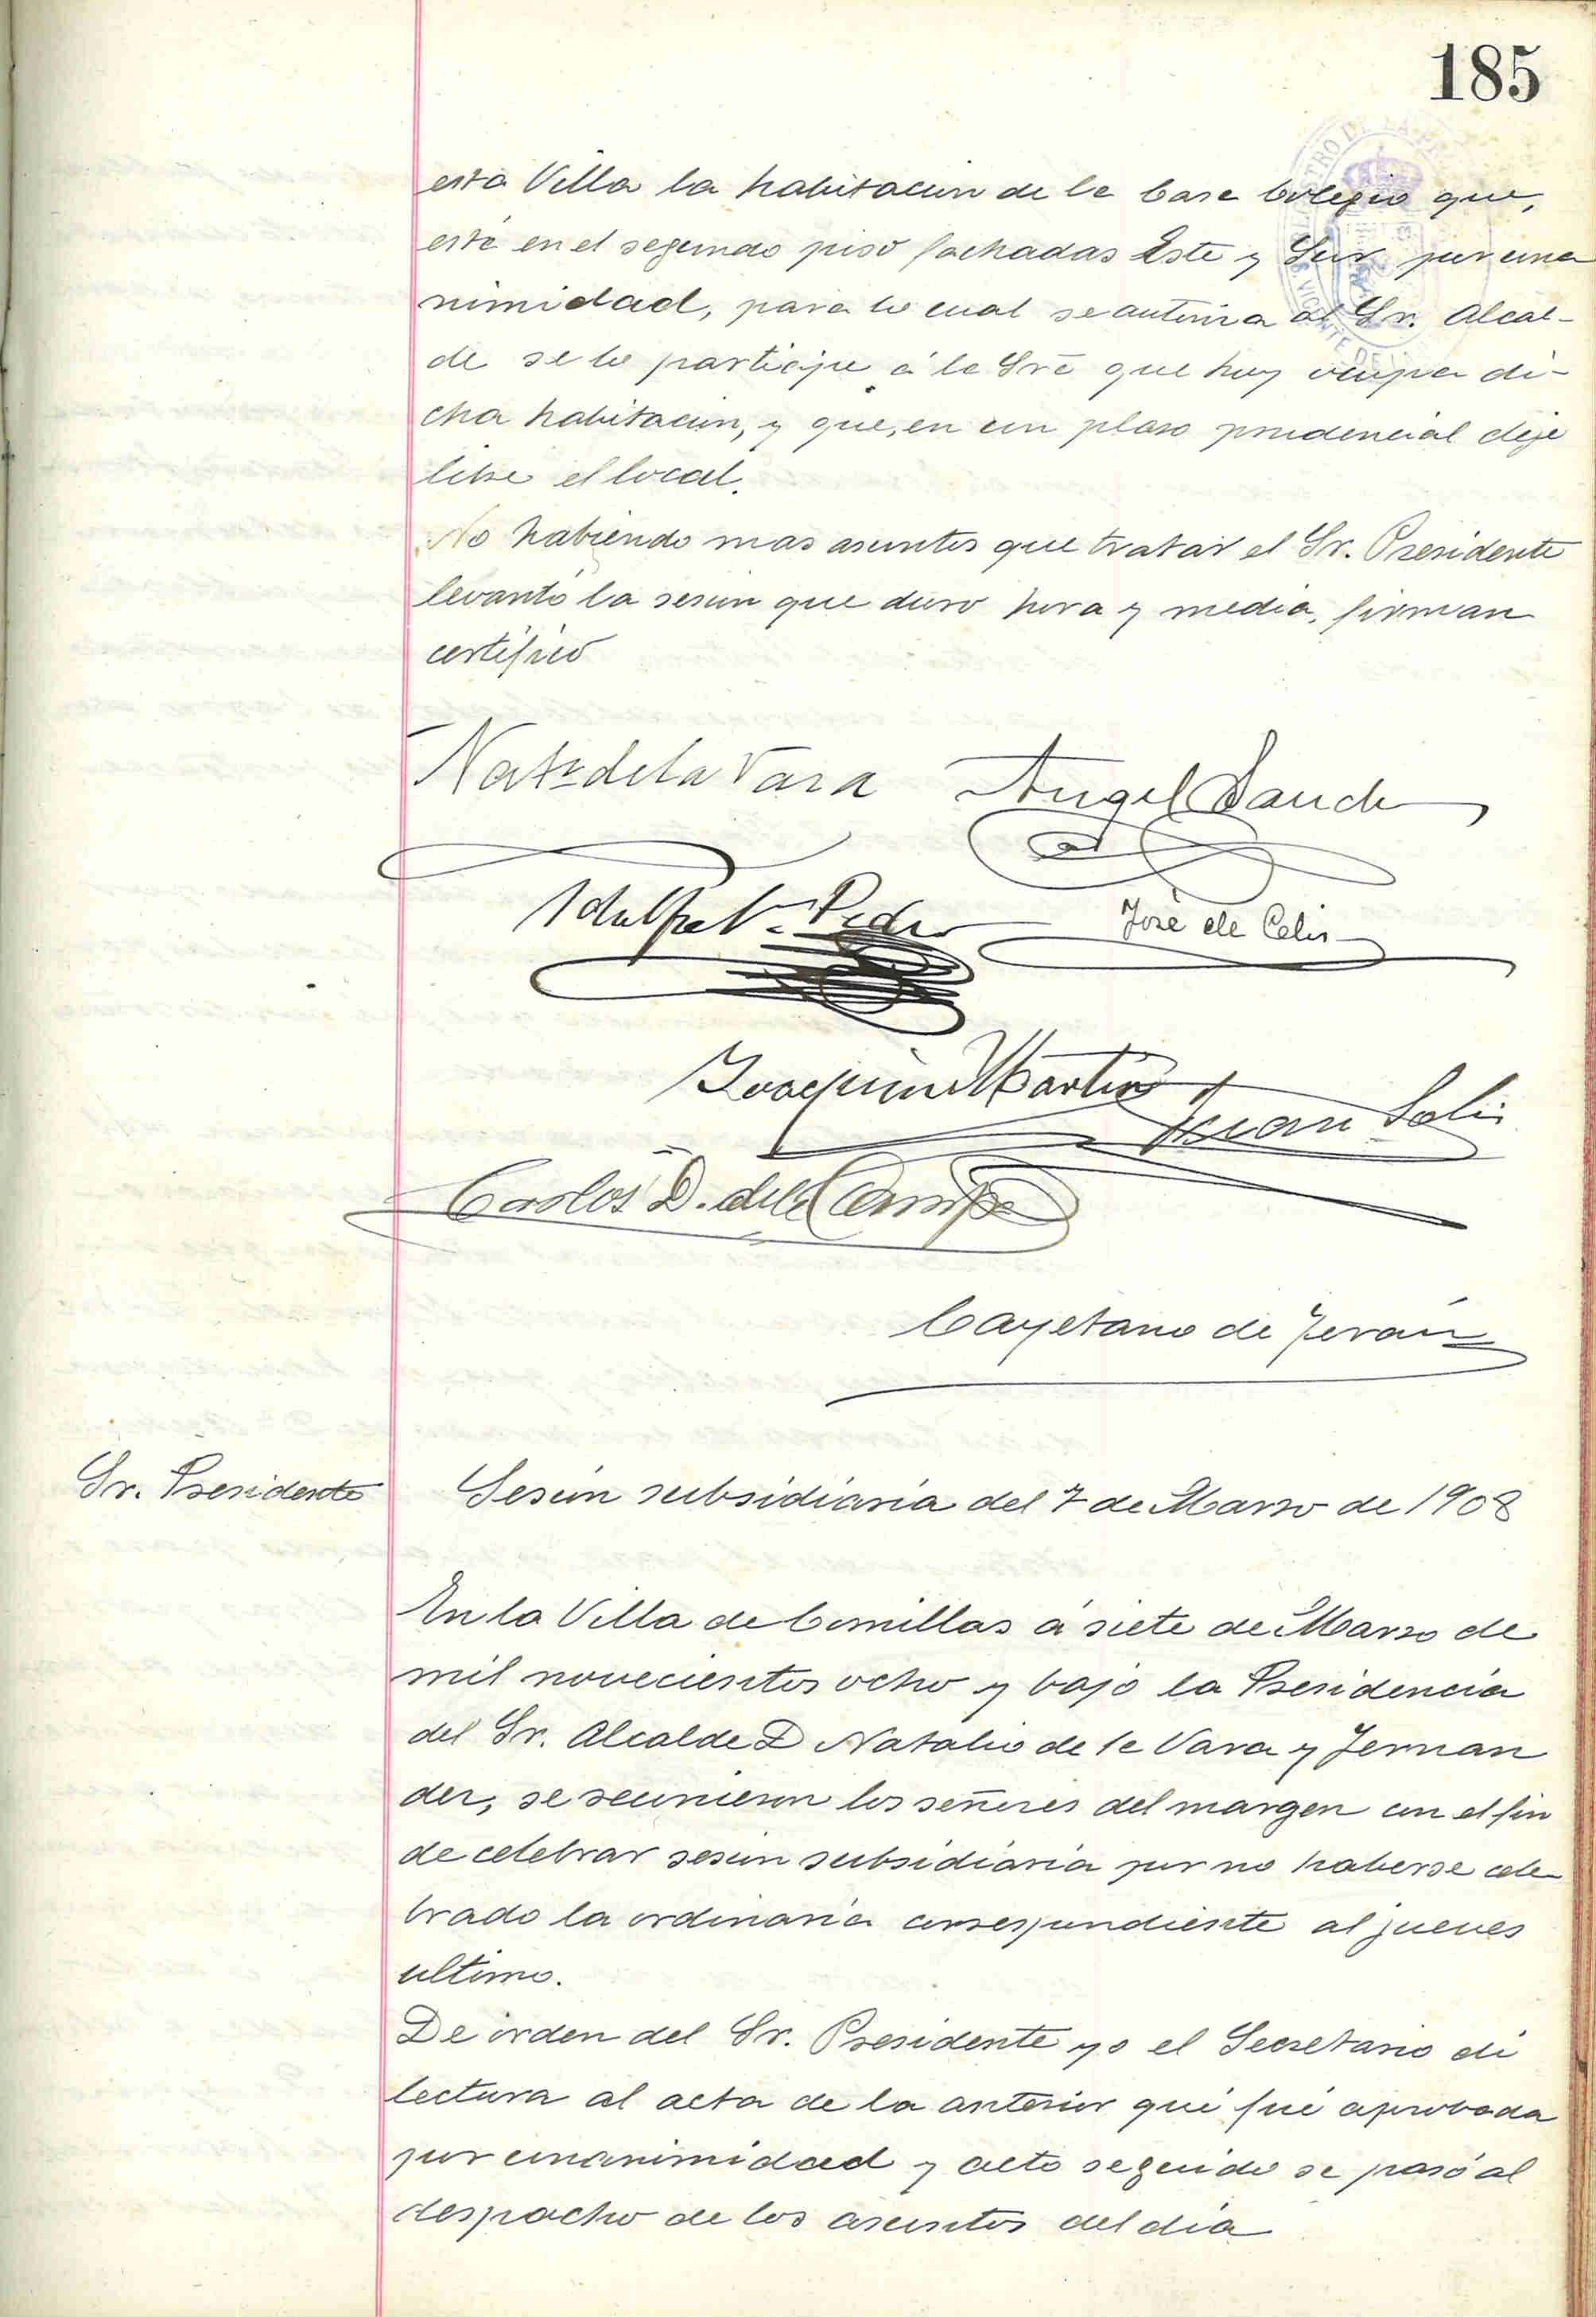 185
esta Villa la habitacion de la Casa Colegio que,
está en el segundo piso fachadas Este y Sur por una
nimidad, para lo cual se autoriza al Sr. Alcal-
de se lo participe á la Sra que hoy ocupa di-
cha habitacion, y que, en un plazo prudencial deje
libre el local.
No habiendo mas asuntos que tratar el Sr. Presidente
levantó la sesion que duro hora y media, firman
certifico
Natº de la Vara Angel Sanch
José de Celis
Joaquin Martin Juan Solis
Carlos D. de la Campa
Cayetano de Terán
Sr. Presidente
Sesion subsidiaria del 7 de Marzo de 1908
En la Villa de Comillas á siete de Marzo de
mil novecientos ocho y bajo la Presidencia
del Sr. Alcalde D Natalio de la Vara y Fernan
dez, se reunieron los señores del margen con el fin
de celebrar sesion subsidiaria por no haberse cele
brado la ordinaria correspondiente al jueves
ultimo.
De orden del Sr. Presidente yo el Secretario di
lectura al acta de la anterior que fué aprobada
por unanimidad y acto seguido se pasó al
despacho de los asuntos del dia